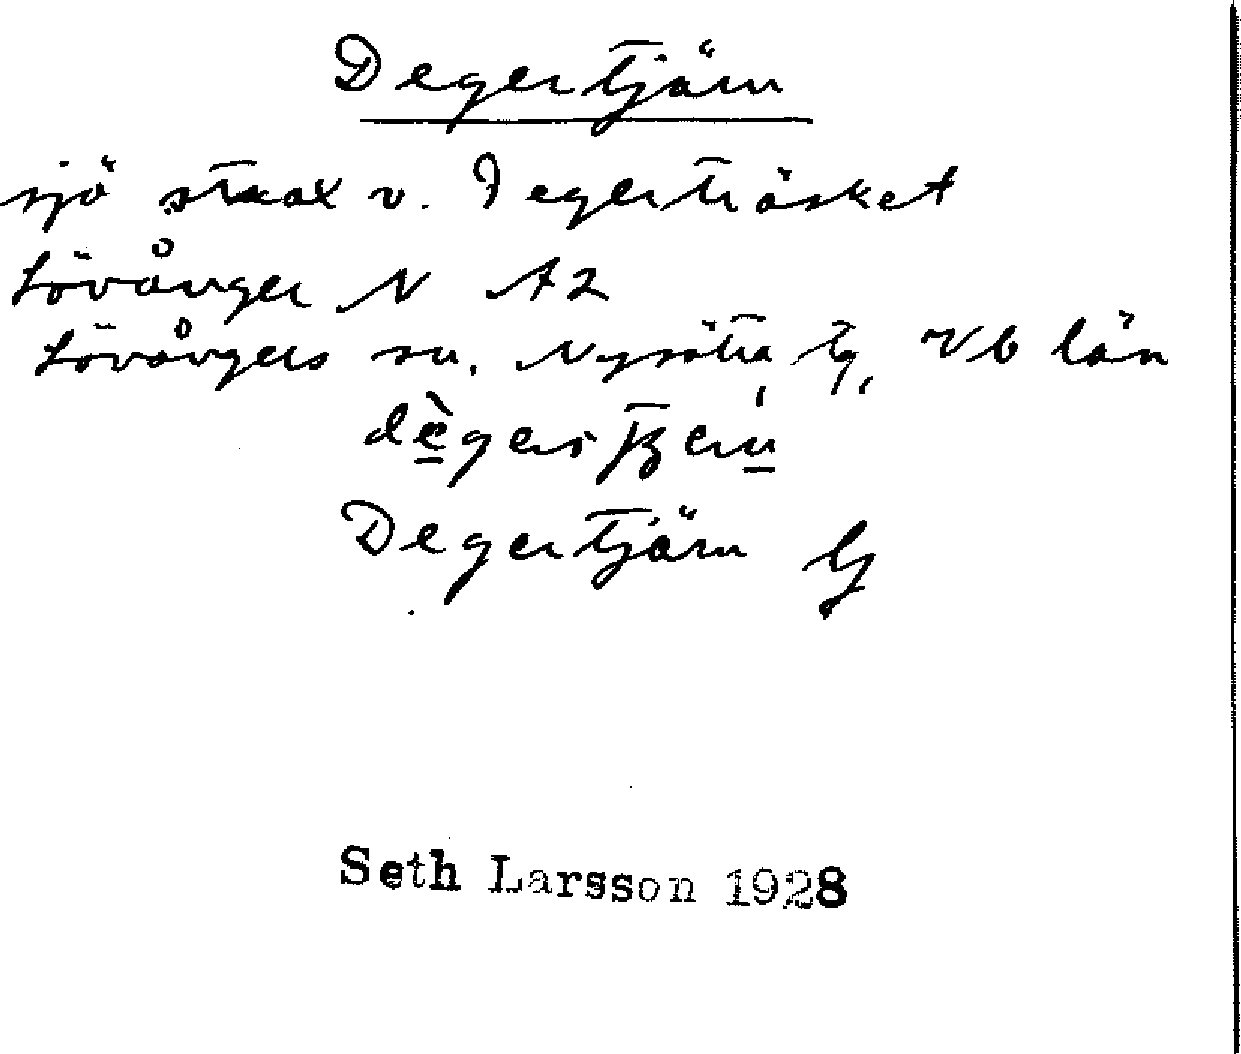 Degertjärn
sjö strax v. Degerträsket
Lövånger N A2
Lövångers sn, Nysätra tg, Vb län
Degertjärn
Seth Larsson 1928